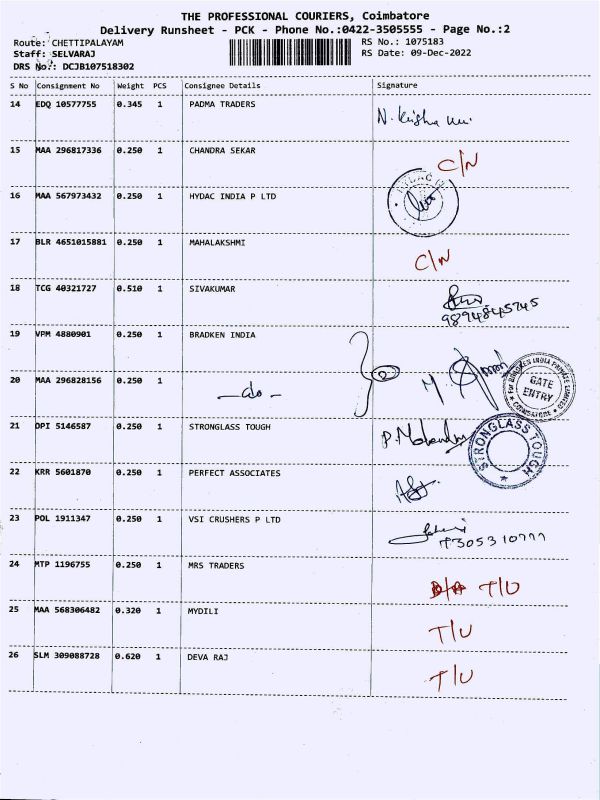 THE PROFESSIONAL COURIERS, Coimbatore
Delivery Runsheet - PCK - Phone No.:0422-3505555 - Page No.:2
Route: CHETTIPALAYAM RS No.: 1075183
Staff: SELVARAJ RS Date: 09-Dec-2022
DRS No.: DCJB107518302
S No Consignment No Weight PCS Consignee Details Signature
14 EDQ 10577755 0.345 1 PADMA TRADERS
15 MAA 296817336 0.250 1 CHANDRA SEKAR C/N
16 MAA 567973432 0.250 1 HYDAC INDIA P LTD
17 BLR 4651015881 0.250 1 MAHALAKSHMI C/N
18 TCG 40321727 0.510 1 SIVAKUMAR
9894845745
19 VPM 4880901 0.250 1 BRADKEN INDIA
20 MAA 296828156 0.250 1 -do- 2 GATE ENTRY
21 OPI 5146587 0.250 1 STRONGLASS TOUGH STRONGLASS TOUGH
22 KRR 5601870 0.250 1 PERFECT ASSOCIATES
23 POL 1911347 0.250 1 VSI CRUSHERS P LTD
24 MTP 1196755 0.250 1 MRS TRADERS T/U
25 MAA 568306482 0.320 1 MYDILI T/U
26 SLM 309088728 0.620 1 DEVA RAJ T/U